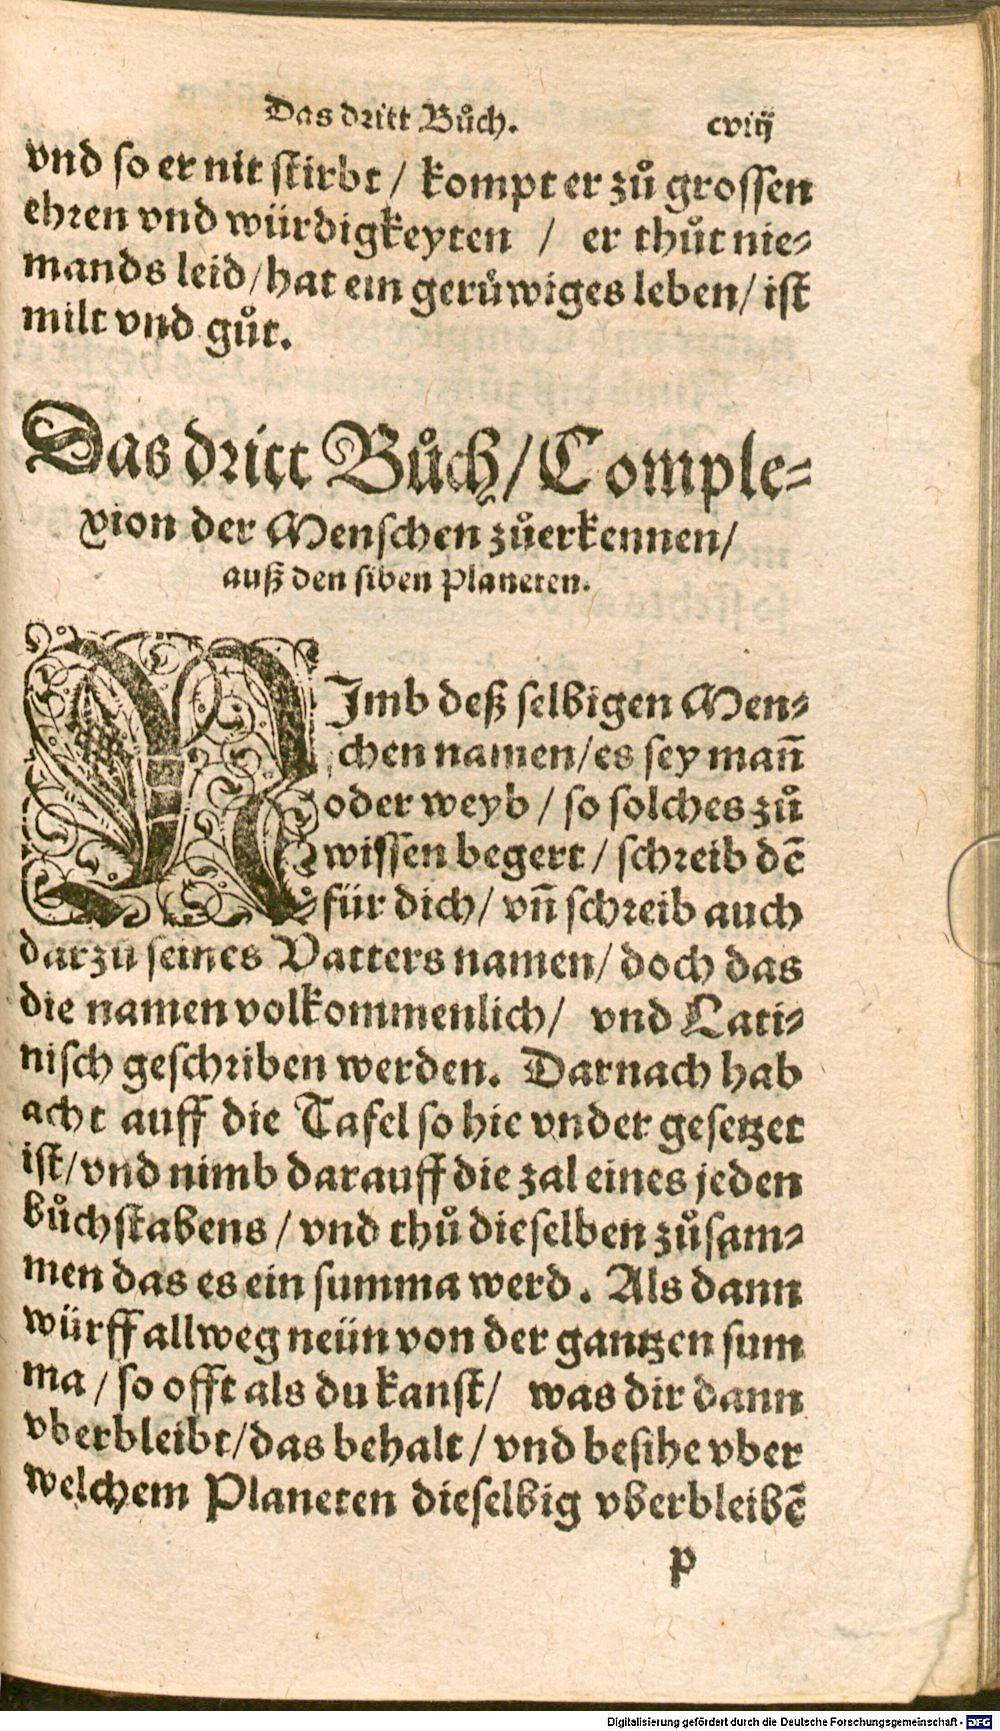 Das dritt Bůch. cviij
vnd so er nit stirbt / kompt er zů grossen
ehren vnd würdigkeyten / er thůt nie⸗
mands leid/hat ein gerůwiges leben/ ist
milt vnd gůt.
Das dritt Bůch/ Comple⸗
xion der Menschen zůerkennen/
auß den siben Planeten.
NImb deß selbigen Men⸗
schen namen/es sey mañ
oder weyb / so solches zů
wissen begert / schreib dē
für dich/ vñ schreib auch
darzu seines Vatters namen/ doch das
die namen volkommenlich/ vnd Lati⸗
nisch geschriben werden. Darnach hab
acht auff die Tafel so hie vnder gesetzet
ist/vnd nimb darauff die zal eines jeden
bůchstabens / vnd thů dieselben zůsam⸗
men das es ein summa werd. Als dann
würff allweg neün von der gantzen sum
ma / so offt als du kanst/ was dir dann
vberbleibt/das behalt / vnd besihe vber
welchem Planeten dieselbig vberbleibē
p
Digitalisierung gefördert durch die Deutsche Forschungsgemeinschaft - DFG